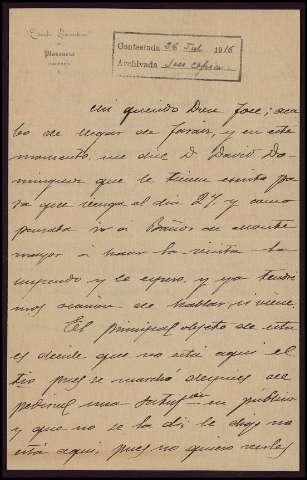 Plasencia
Contestada 26 Feb 1916
Archivada
Mi querido Don José; aca-
bo de llegar de Jarais, y en este
momento, me dice D. David Do-
minguez que le tiene escrita pa-
ra que venga el dia 27 y como
pensaba ir a Baños de Monte
mayor á hacer la visita la
suspendo y le espero, y ya tendre-
mos ocasión de hablar, si viene.
El principal objeto de esta
es decirle que no está aqui el
tio pues se marchó despues de
pedirme una en público
y que no se la di le digo no
está aqui, pues no quiero